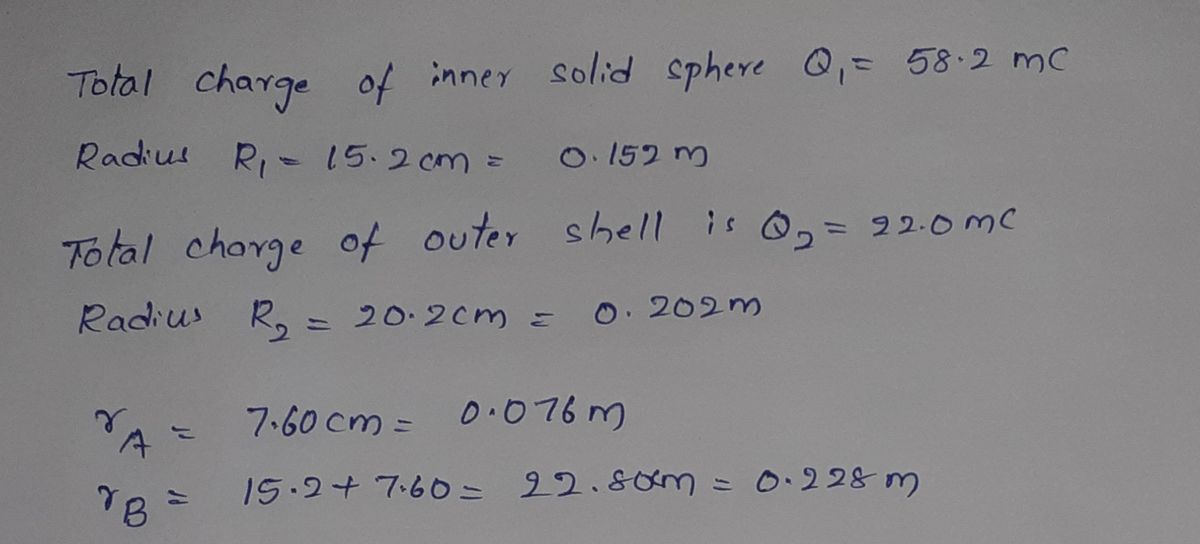 Total charge of inner solid sphere Q₁ = 58.2 mC
Radius R₁ = 15.2 cm = 0.152 m
Total charge of outer shell is Q₂ = 22.0 mC
Radius R₂ = 20.2 cm = 0.202 m
r_A = 7.60 cm = 0.076 m
r_B = 15.2 + 7.60 = 22.80 cm = 0.228 m